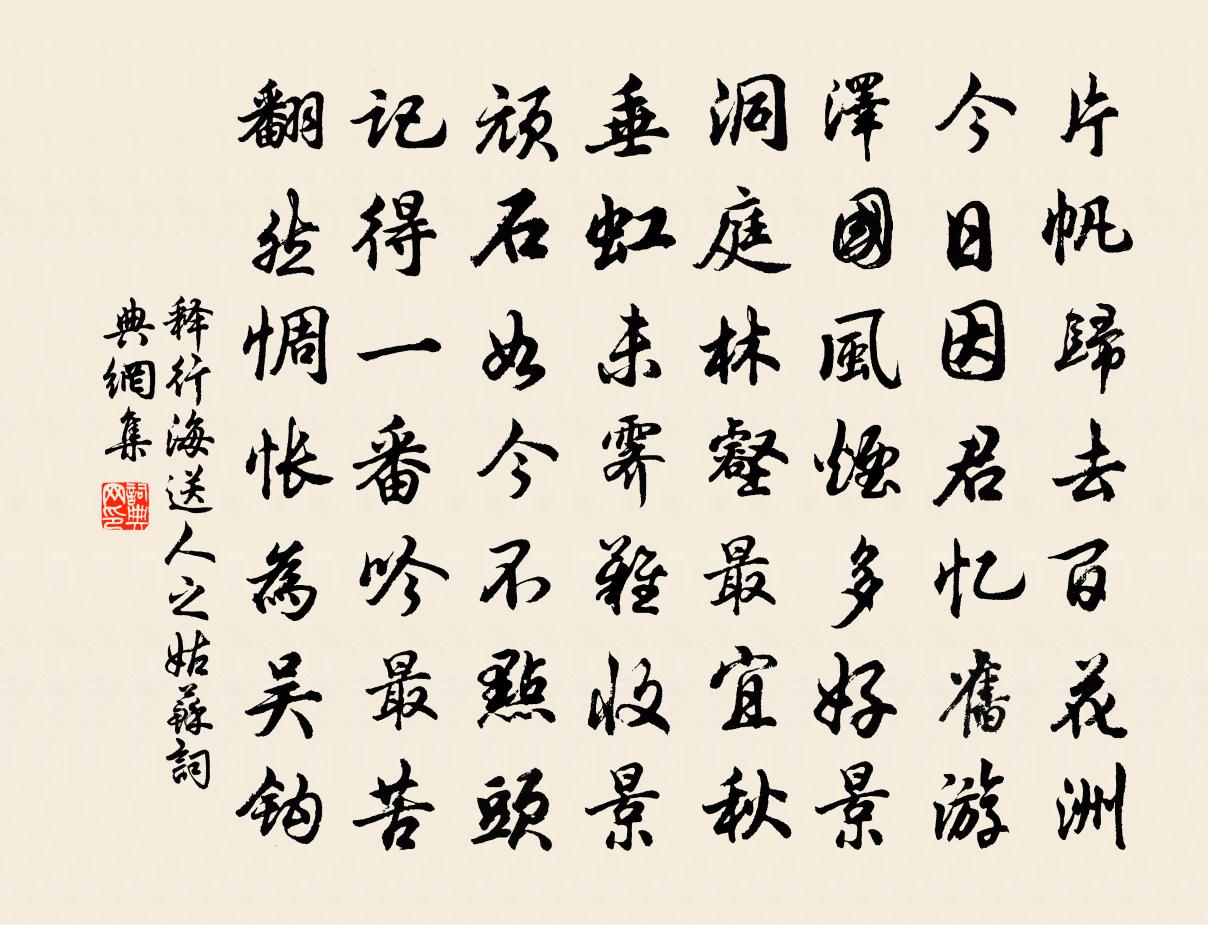 片帆歸去百花洲
今日因君忆舊游
澤國風煙多好景
洞庭林壑最宜秋
垂虹未霽難收景
頑石如今不點頭
記得一番吟最苦
翻然惆悵為吴钩
释行海送人之姑蘇詞
典網集
詞典网印